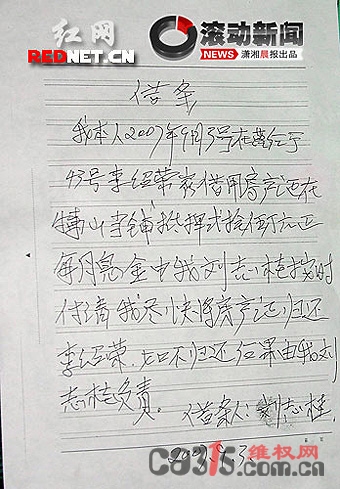 红网
REDNET.CN
滚动新闻
NEWS 潇湘晨报出品
借条
我本人2007年9月3号在蔡红于
43号李绍荣家借用房产证在
博山当铺抵押贰拾伍万元正
每月息金由我刘志桂按时
付清我尽快将房产证归还
李绍荣.如不归还后果由我刘
志桂负责。
借条人:刘志桂
2007.9.3.
维权网
Ca315.com.cn